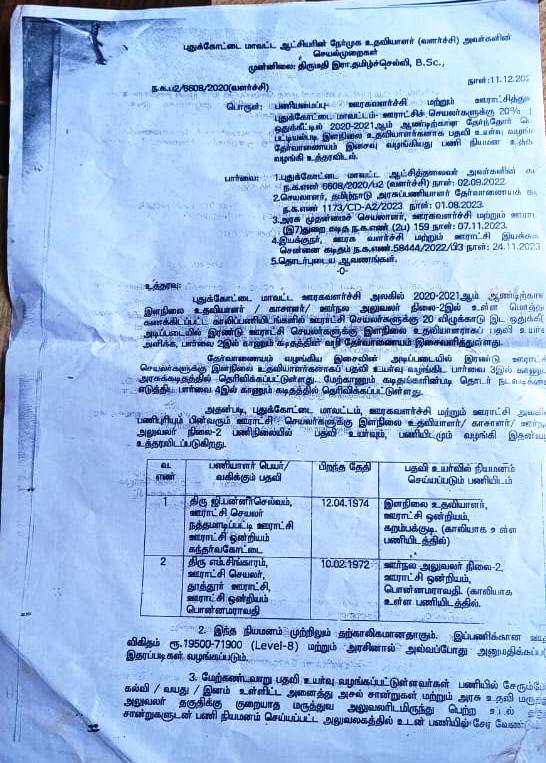 புதுக்கோட்டை மாவட்ட ஆட்சியரின் நேர்முக உதவியாளர் (வளர்ச்சி) அவர்களின்
செயல்முறைகள்
முன்னிலை: திருமதி இரா.தமிழ்ச்செல்வி, B.Sc.,
ந.க.ப2/6608/2020(வளர்ச்சி) நாள்:11.12.202
பொருள்: பணியமைப்பு- ஊரகவளர்ச்சி மற்றும் ஊராட்சித்து
புதுக்கோட்டை மாவட்டம்- ஊராட்சிச் செயலர்களுக்கு 20%
ஒதுக்கீட்டில் 2020-2021ஆம் ஆண்டிற்கான தேர்ந்தோர்
பட்டியல்படி இளநிலை உதவியாளர்களாக பதவி உயர்வு வழங்க
தேர்வாணையம் இசைவு வழங்கியது பணி நியமன
வழங்கி உத்தரவிடல்.
பார்வை: 1.புதுக்கோட்டை மாவட்ட ஆட்சித்தலைவர் அவர்களின்
ந.க.எண் 6608/2020/ப2 (வளர்ச்சி) நாள்: 02.09.2022.
2.செயலாளர், தமிழ்நாடு அரசுப்பணியாளர் தேர்வாணையக்
ந.க.எண் 1173/CD-A2/2023 நாள்: 01.08.2023.
3.அரசு முதன்மைச் செயலாளர், ஊரகவளர்ச்சி மற்றும் ஊராட
(இ7)துறை கடித ந.க.எண் (2ப) 159 நாள்: 07.11.2023.
4.இயக்குநர், ஊரக வளர்ச்சி மற்றும் ஊராட்சி இயக்கக
சென்னை கடிதம் ந.க.எண்.58444/2022/பி3 நாள்: 24.11.2023
5.தொடர்புடைய ஆவணங்கள்.
-0-
உத்தரவு:
புதுக்கோட்டை மாவட்ட ஊரகவளர்ச்சி அலகில் 2020-2021ஆம் ஆண்டிற்கான
இளநிலை உதவியாளர் / காசாளர்/ ஊர்நல அலுவலர் நிலை-2இல் உள்ள மொத்த
கணக்கிடப்பட்ட காலிப்பணியிடங்களில் ஊராட்சி செயலர்களுக்கு 20 விழுக்காடு இட ஒதுக்கீ
அடிப்படையில் இரண்டு ஊராட்சி செயலர்களுக்கு இளநிலை உதவியாளராகப் பதவி உயர்
அளிக்க, பார்வை 2இல் காணும் கடிதத்தின் வழி தேர்வாணையம் இசைவளித்துள்ளது.
தேர்வாணையம் வழங்கிய இசைவின் அடிப்படையில் இரண்டு ஊராட்
செயலர்களுக்கு இளநிலை உதவியாளர்களாகப் பதவி உயர்வு வழங்கிட பார்வை 3இல் காணு
அரசுக்கடிதத்தில் தெரிவிக்கப்பட்டுள்ளது. மேற்காணும் கடிதங்களின்படி தொடர் நடவடிக்கை
எடுத்திட பார்வை 4இல் காணும் கடிதத்தில் தெரிவிக்கப்பட்டுள்ளது.
அதன்படி, புதுக்கோட்டை மாவட்டம், ஊரகவளர்ச்சி மற்றும் ஊராட்சி அலகி
பணிபுரியும் பின்வரும் ஊராட்சி செயலர்களுக்கு இளநிலை உதவியாளர்/ காசாளர்/ ஊர்ந
அலுவலர் நிலை-2 பணிநிலையில் பதவி உயர்வும், பணியிடமும் வழங்கி இதன்வ
உத்தரவிடப்படுகிறது.
வ. எண் பணியாளர் பெயர்/ வகிக்கும் பதவி பிறந்த தேதி பதவி உயர்வில் நியமனம் செய்யப்படும் பணியிடம்
1 திரு ஜி.பன்னீர்செல்வம், 12.04.1974 இளநிலை உதவியாளர்,
ஊராட்சி செயலர் ஊராட்சி ஒன்றியம்,
நத்தமாடிப்பட்டி ஊராட்சி கறம்பக்குடி. (காலியாக உள்ள
ஊராட்சி ஒன்றியம் பணியிடத்தில்)
கந்தர்வகோட்டை.
2 திரு எம்.சிங்காரம், 10.02.1972 ஊர்நல அலுவலர் நிலை-2,
ஊராட்சி செயலர், ஊராட்சி ஒன்றியம்,
தூத்தூர் ஊராட்சி, பொன்னமராவதி. (காலியாக
ஊராட்சி ஒன்றியம் உள்ள பணியிடத்தில்.
பொன்னமராவதி
2. இந்த நியமனம் முற்றிலும் தற்காலிகமானதாகும். இப்பணிக்கான ஊத
விகிதம் ரூ.19500-71900 (Level-8) மற்றும் அரசினால் அவ்வப்போது அனுமதிக்கப்ப
இதரப்படிகள் வழங்கப்படும்.
3. மேற்கண்டவாறு பதவி உயர்வு வழங்கப்பட்டுள்ளவர்கள் பணியில் சேரும்போ
கல்வி / வயது / இனம் உள்ளிட்ட அனைத்து அசல் சான்றுகள் மற்றும் அரசு உதவி மருத்
அலுவலர் தகுதிக்கு குறையாத மருத்துவ அலுவலரிடமிருந்து பெற்ற உடல்
சான்றுகளுடன் பணி நியமனம் செய்யப்பட்ட அலுவலகத்தில் உடன் பணியில் சேர வேண்டும்